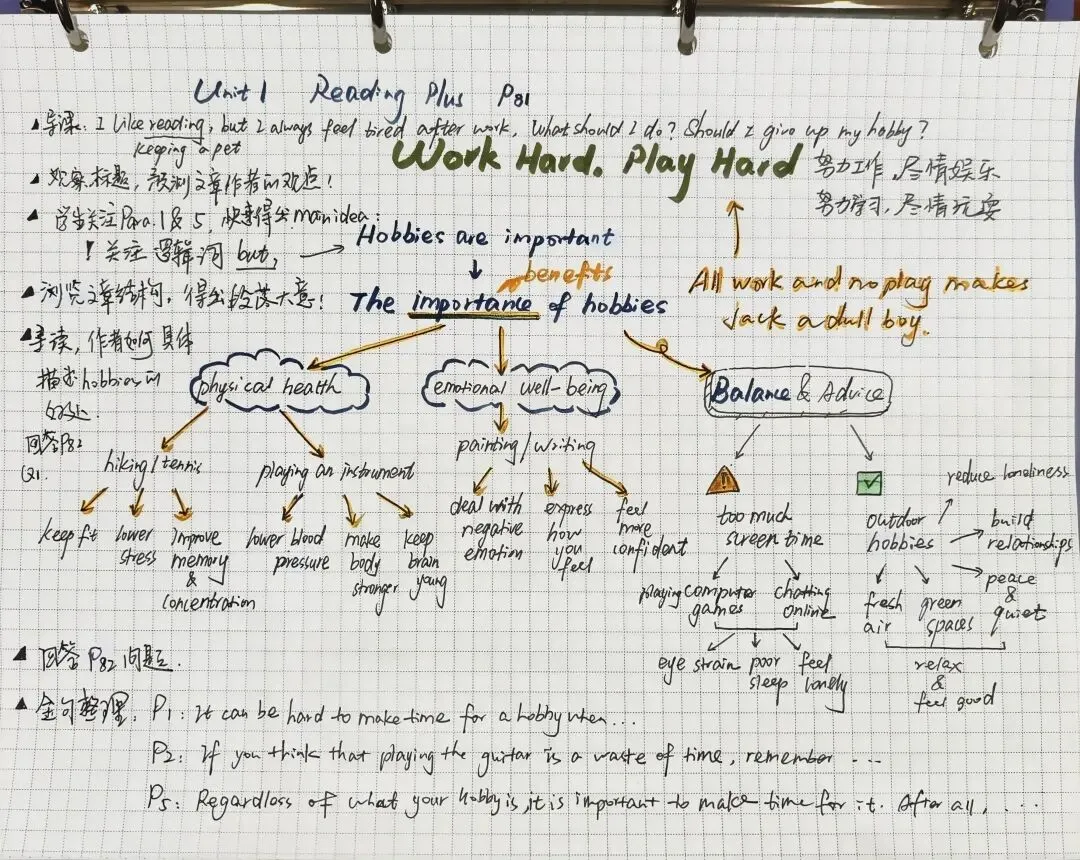 Unit 1 Reading Plus P81
▲导课: I like reading, but I always feel tired after work. What should I do? Should I give up my hobby?
keeping a pet
Work Hard. Play Hard
努力工作,尽情娱乐
努力学习,尽情玩耍
▲观察标题,预测文章作者的观点!
▲学生关注Para. 1 & 5,快速得出main idea:
!关注逻辑词 but,
Hobbies are important
benefits
The importance of hobbies
All work and no play makes
Jack a dull boy.
▲浏览文章结构,得出段落大意!
▲寻读,作者如何具体
描述hobbies的
好处.
回答P82
Q1.
physical health
emotional well-being
Balance & Advice
hiking/tennis
playing an instrument
painting/writing
keep fit
lower stress
improve memory & concentration
lower blood pressure
make body stronger
keep brain young
deal with negative emotion
express how you feel
feel more confident
!
too much screen time
playing computer games
chatting online
eye strain
poor sleep
feel lonely
outdoor hobbies
reduce loneliness
build relationships
peace & quiet
fresh air
green spaces
relax & feel good
▲回答P82问题.
▲金句整理: P1: It can be hard to make time for a hobby when...
P2: If you think that playing the guitar is a waste of time, remember ...
P5: Regardless of what your hobby is, it is important to make time for it. After all, ....